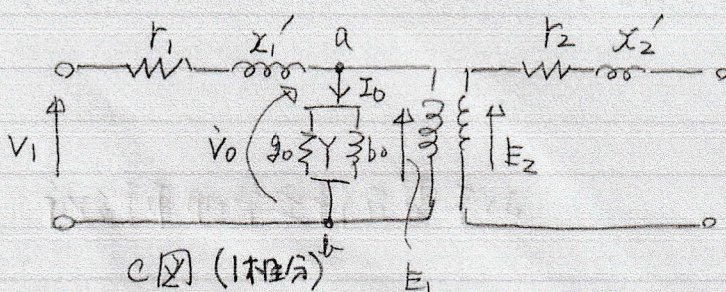 r₁ x₁' a r₂ x₂'
I₀
V₁ V̇₀ g₀ Y b₀ E₂
b
C図 (1相分) E₁